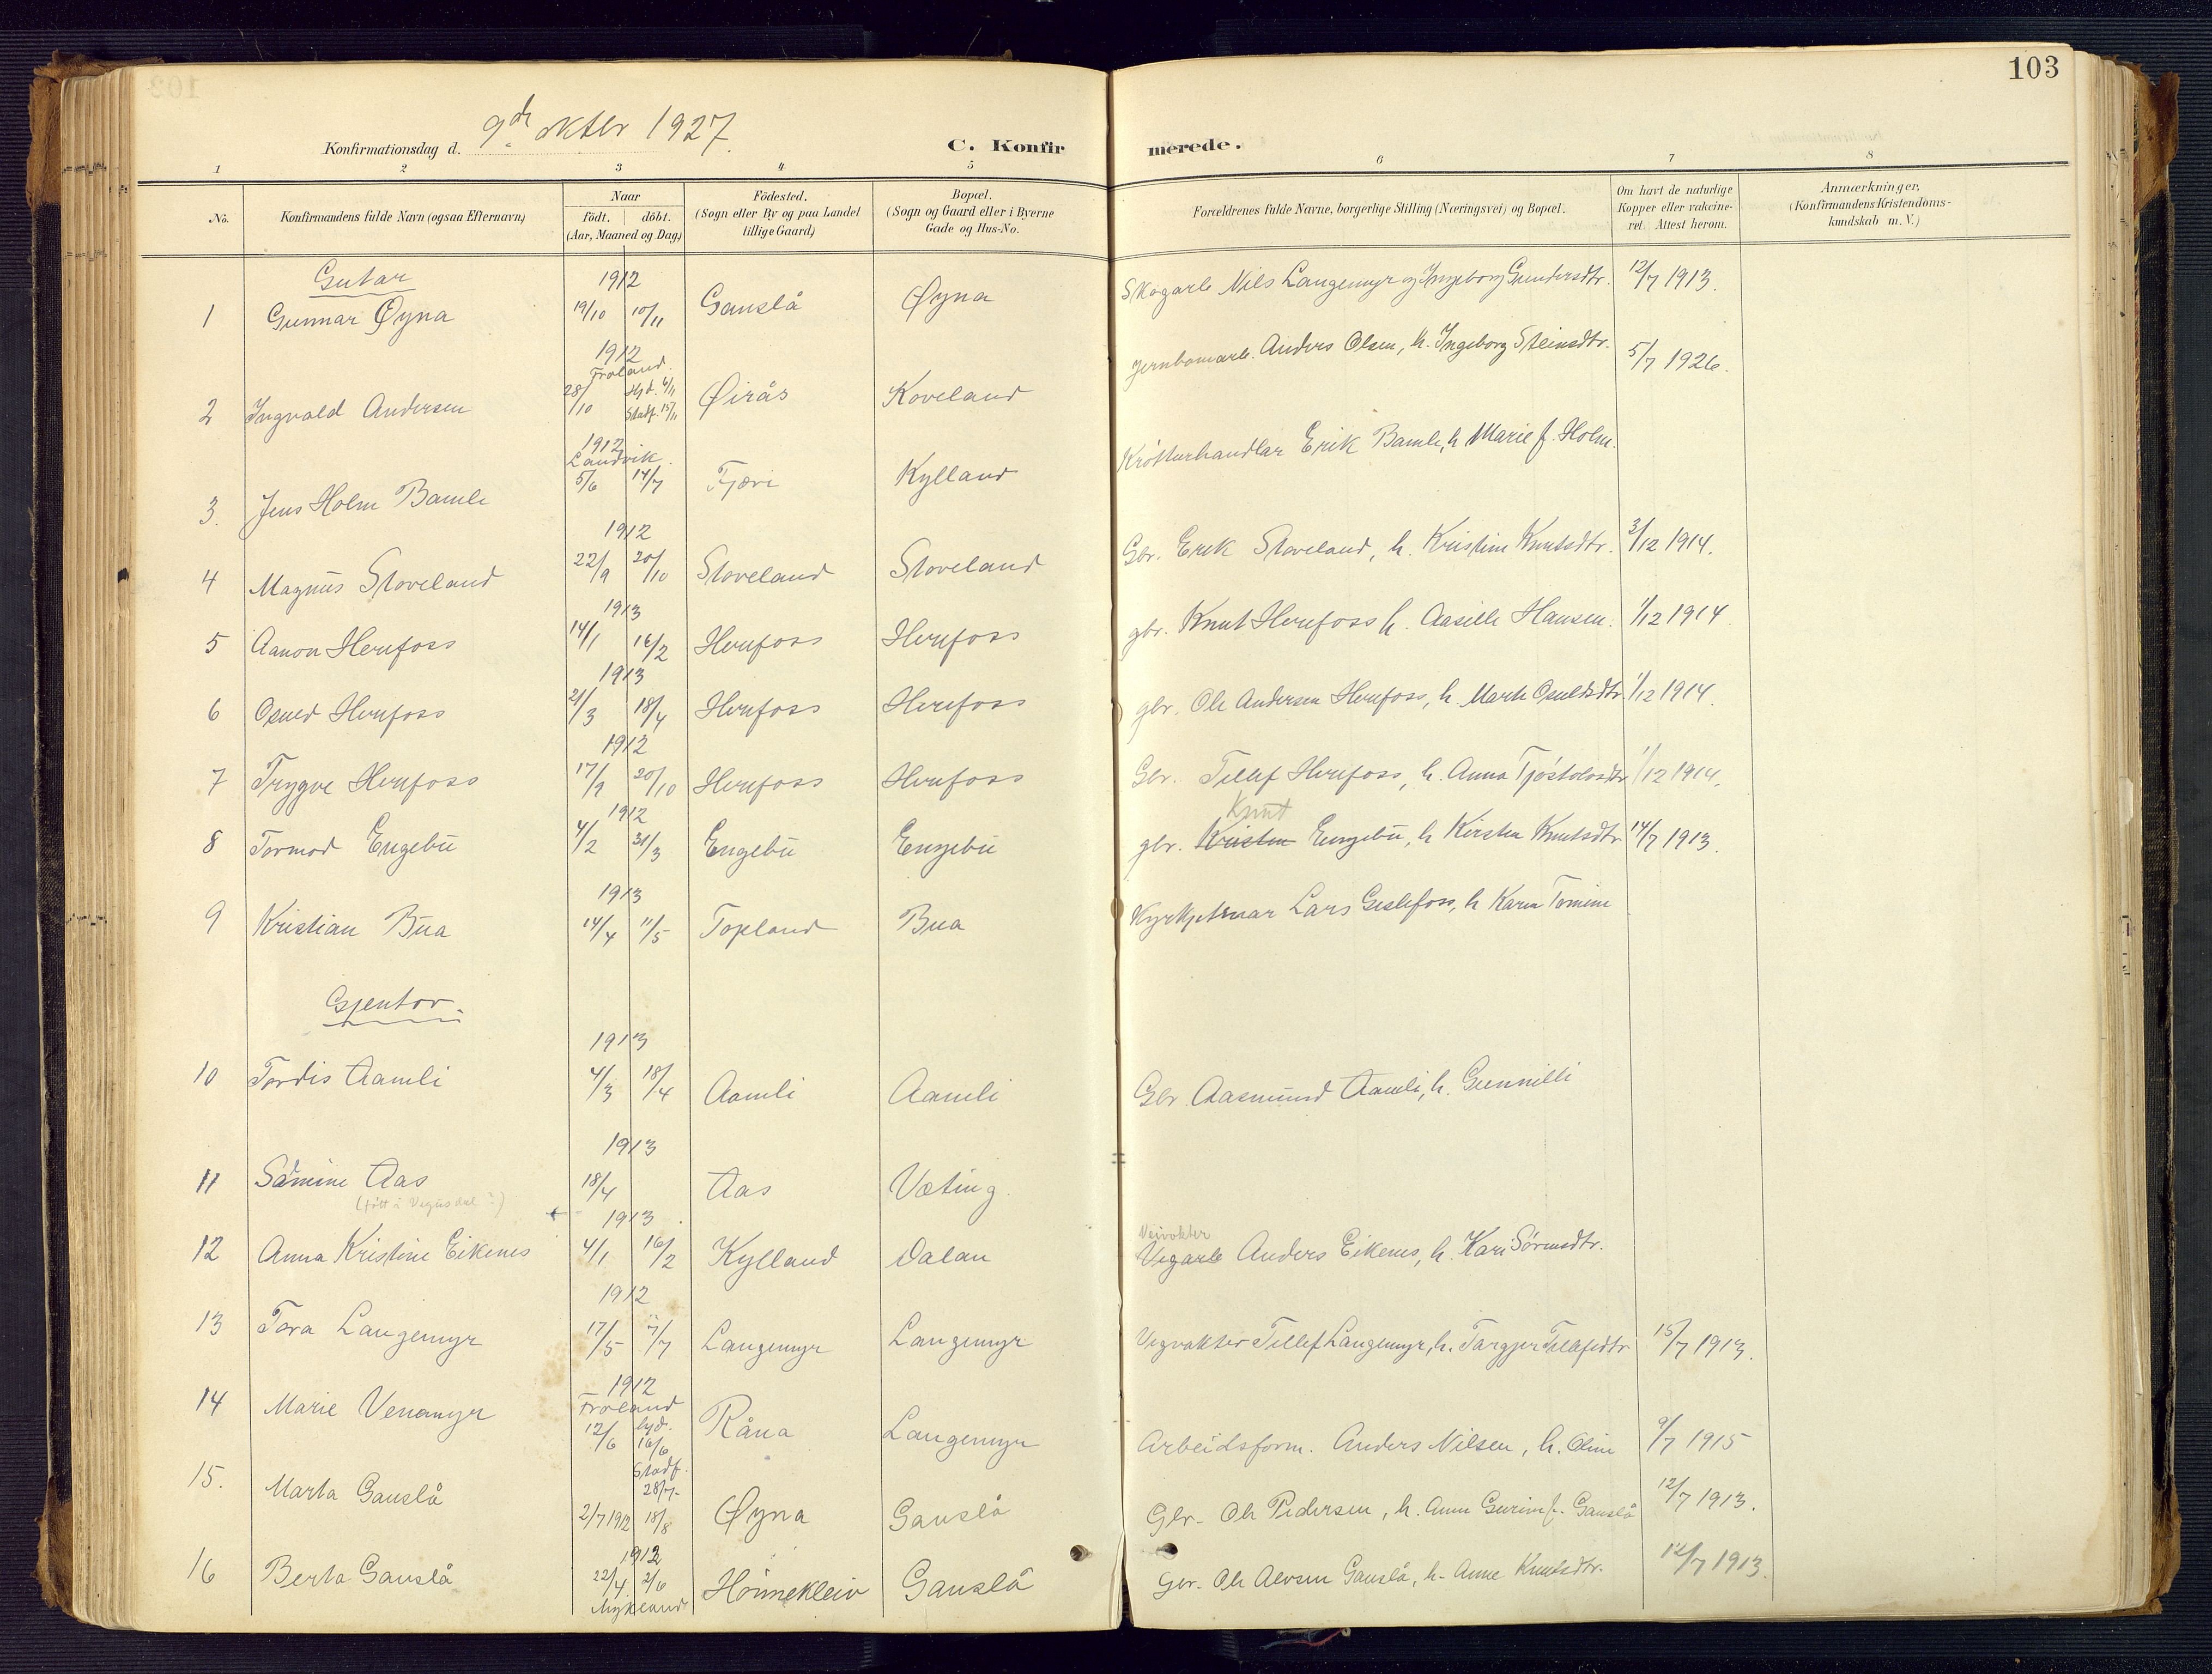 103
Konfirmationsdag d. 9de oktbr 1927.
C. Konfirmerede.
1 2 3 4 5 6 7 8
No. Konfirmandens fulde Navn (ogsaa Efternavn) Naar födt. döbt. (Aar, Maaned og Dag) Födested. (Sogn eller By og paa Landet tillige Gaard) Bopæl. (Sogn og Gaard eller i Byerne Gade og Hus-No. Forældrenes fulde Navne, borgerlige Stilling (Næringsvei) og Bopæl. Om havt de naturlige Kopper eller vakcineret. Attest herom. Anmærkninger. (Konfirmandens Kristendomskundskab m. V.)
Gutar
1912
1 Gunnar Øyna 19/10 10/11 Gauslå Øyna Skogarb Nils Langemyr og Ingeborg Gundersdtr. 12/7 1913.
1912
Froland.
2 Ingvald Andersen 28/10 Hjd. 4/11 Stadf. 15/11 Øirås Koveland Jernbanearb. Anders Olsen, h. Ingeborg Steinsdtr. 5/7 1926.
1912
Landvik.
3. Jens Holm Bamle 5/6 14/7 Fjære Kylland Krøtturhandlar Erik Bamle, h Marie f. Holm.
1912
4 Magnus Stoveland 22/9 20/10 Stoveland Stoveland Gbr. Erik Stoveland, h. Kristine Knutsdtr. 3/12 1914.
1913
5 Aanon Herefoss 14/1 16/2 Herefoss Herefoss gbr. Knut Herefoss h. Aasille Hansen. 1/12 1914
1913
6 Osuld Herefoss 21/3 18/4 Herefoss Herefoss gbr. Ole Andersen Herefoss, h. Marte Osuldsdtr 1/12 1914.
1912
7 Trygve Herefoss 17/9 20/10 Herefoss Herefoss Gbr. Tellef Herefoss, h. Anna Tjøstolvsdtr 1/12 1914.
1912
Knut
8 Tormod Engebu 4/2 31/3 Engebu Engebu gbr. Kristen Engebu, h Kirsten Knutsdtr 14/7 1913.
1913
9 Kristian Bua 14/4 11/5 Topland Bua Kyrkjetenar Lars Geslefoss, h Karen Tomine
Gjentor.
1913
10 Tordis Aamli 4/3 18/4 Aamli Aamli Gbr. Aasmund Aamli, h. Gunnilli
1913
11 Sămine Aas 18/4 Aas Væting.
(født i Vegusdal?)
1913.
Veivokter
12 Anna Kristine Eikenes 4/1 16/2 Kylland Dalan Vegarb Anders Eikenes, h. Kari Sørensdtr.
1912
13 Tora Langemyr 17/5 7/7 Langemyr Langemyr Vegvakter Tellef Langemyr, h. Targjer Tellefsdtr 15/7 1913.
1912
Froland
14 Marie Venamyr 12/6 hjd. 16/6 Stadf. 28/7. Råna Langemyr Arbeidsform. Anders Nilsen, h. Oline 9/7 1915
15. Marta Gauslå 2/7 1912 18/8 Øyna Gauslå Gbr. Ole Pedersen, h. Anne Gurine f. Gauslå 12/7 1913.
1912
16 Berta Gauslå 22/4. 2/6 Hønnekleiv Gauslå Gbr. Ole Alvsen Gauslå, h. Anne Knutsdtr. 12/7 1913.
Mykland